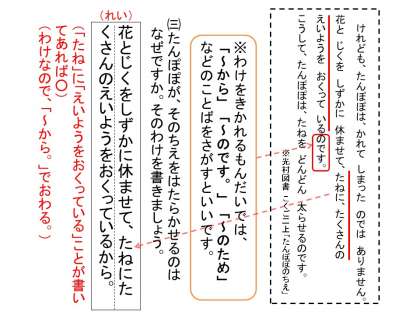 けれども、たんぽぽは、かれて しまった のでは ありません。
花と じくを しずかに 休ませて、たねに、たくさんの
えいようを おくって いるのです。
こうして、たんぽぽは、たねを どんどん 太らせるのです。
※光村図書 こくご二上「たんぽぽのちえ」
※わけをきかれるもんだいでは、
「～から」「～のです。」「～のため」
などのことばをさがすといいです。
㈢たんぽぽが、そのちえをはたらかせるのは
なぜですか。そのわけを書きましょう。
(れい)
花とじくをしずかに休ませて、たねにた
くさんのえいようをおくっているから。
(「たね」に「えいようをおくっている」ことが書い
てあれば〇)
(わけなので、「～から。」でおわる。)